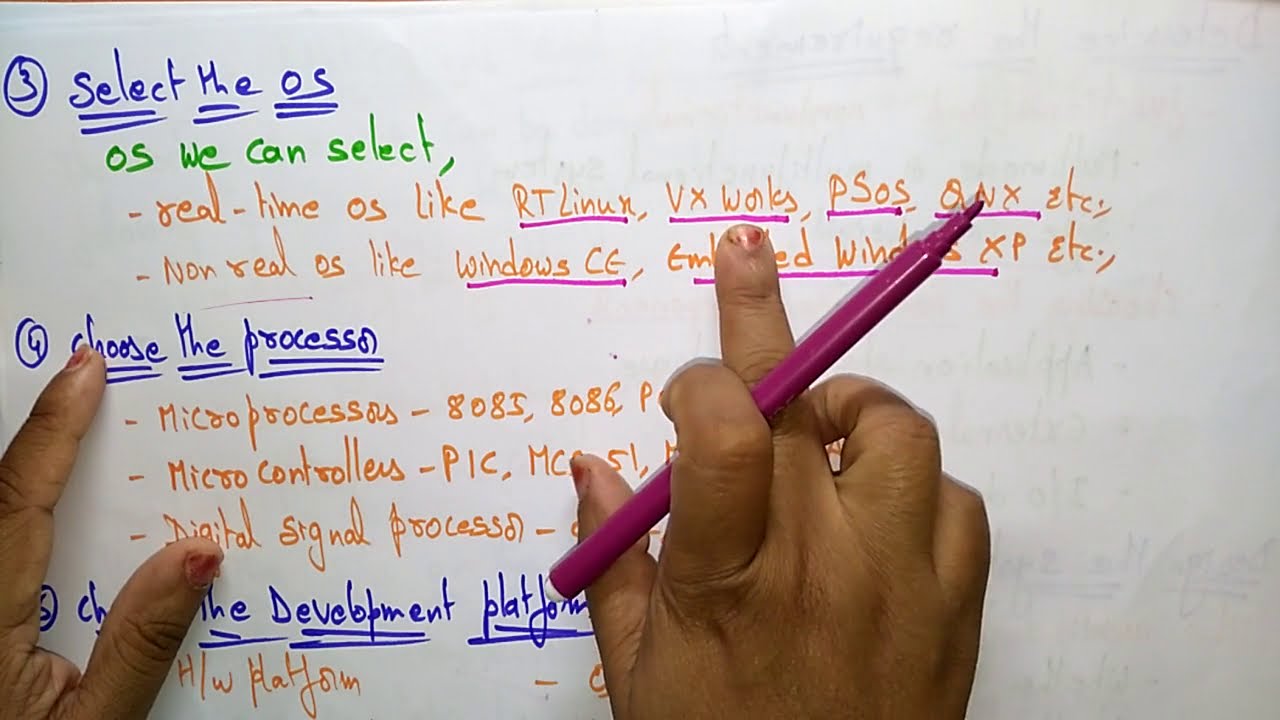 ③ Select the OS
OS we can select,
- real-time os like RTLinux, VX Works, PSOS, QNX Etc.,
- Non real os like Windows CE, Embedded Windows XP Etc.,
④ choose the processor
- Microprocessors - 8085, 8086, P
- Micro controllers - PIC, MCS-51,
- Digital signal processor -
the Development platform
H/w platform -